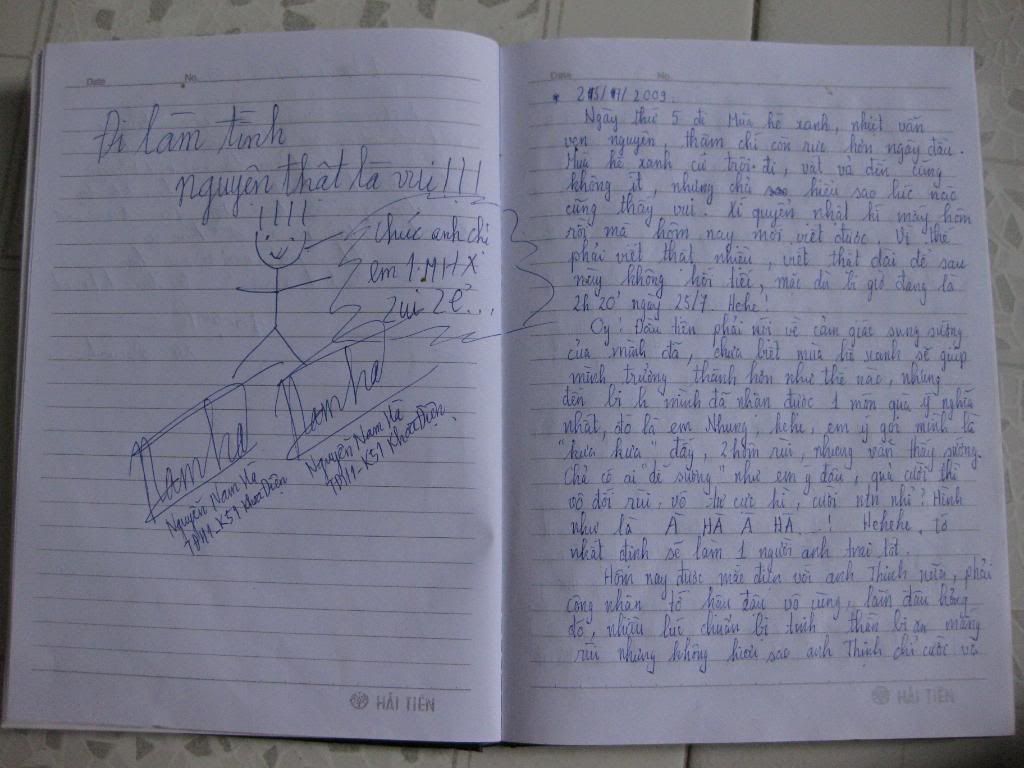 Date No.
Đi làm tình
nguyện thật là vui!!!
Chúc anh chị
em 1 MHX
zui zẻ...
Nam hà
Nguyễn Nam Hà
TĐH1-K51 Khoa Điện
Nam hà
Nguyễn Nam Hà
TĐH1-K51 Khoa Điện.
HẢI TIẾN
Date No.
* 25/7/2009.
Ngày thứ 5 đi Mùa hè xanh, nhiệt vẫn
vẹn nguyên thậm chí còn rực hơn ngày đầu.
Mùa hè xanh cứ trôi đi, vất vả đến cũng
không ít, nhưng chả hiểu sao lúc nào
cũng thấy vui. Xí quyển nhật kí mấy hôm
rồi mà hôm nay mới viết được. Vì thế
phải viết thật nhiều, viết thật dài để sau
này không hối tiếc, mặc dù bi giờ đang là
2h 20' ngày 25/7. Hehe!
Ọy! Đầu tiên phải nói về cảm giác sung sướng
của mình đã, chưa biết mùa hè xanh sẽ giúp
mình trưởng thành hơn như thế nào, nhưng
đến bi h mình đã nhận được 1 món quà ý nghĩa
nhất, đó là em Nhung, hehe, em ý gọi mình là
"hưa hưa" đấy, 2 hôm rùi, nhưng vẫn thấy sướng.
Chả có ai "dễ sương" như em ý đâu, quả cười thì
vô đối rùi, vô tư cực kì, cười ntn nhỉ? Hình
như là À HÁ À HÁ...! Hehehe. Tớ
nhất định sẽ làm 1 người anh trai tốt.
Hôm nay được mắc điện với anh Thịnh nữa, phải
công nhận tớ hậu đậu vô cùng, làm đâu hỏng
đó, nhiều lúc chuẩn bị tinh thần bị ăn mắng
rùi nhưng không hiểu sao anh Thịnh chỉ cười và
HẢI TIẾN